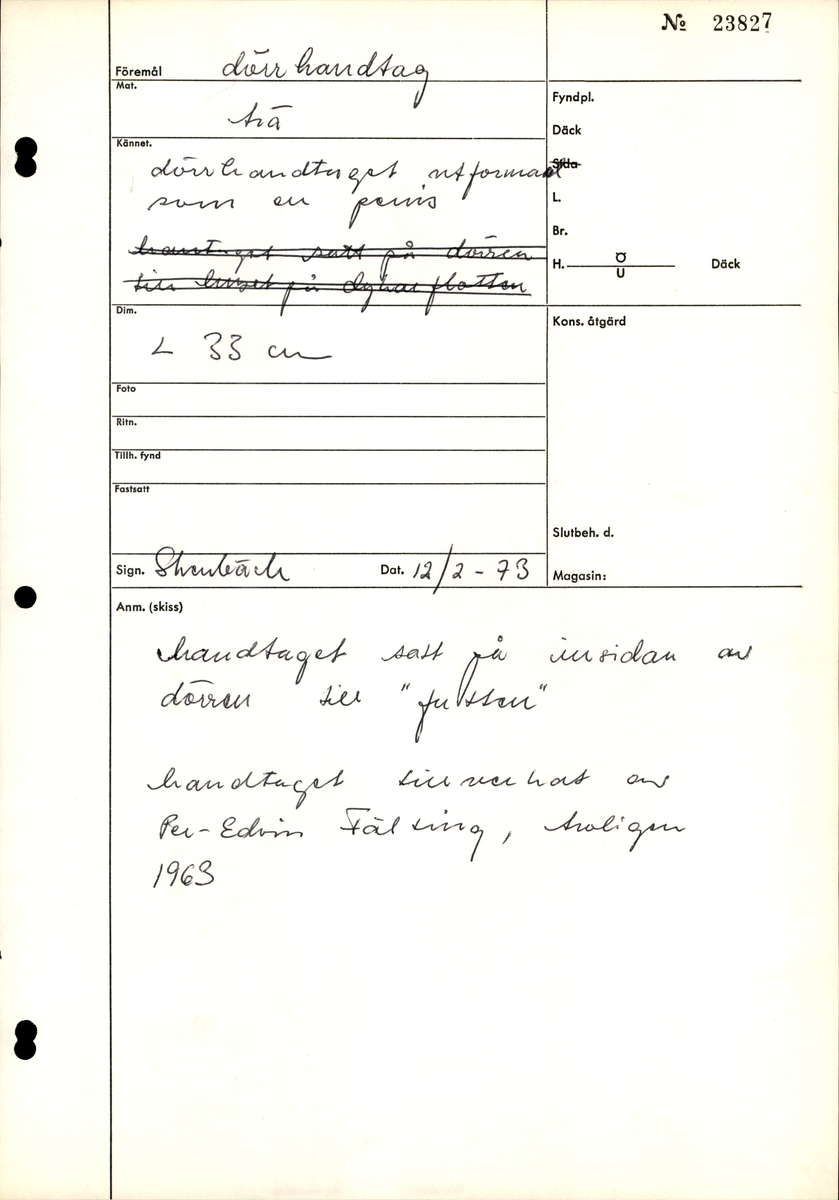 № 23827
Föremål dörrhandtag
Mat.
trä
Kännet.
dörrhandtaget utformad
som en penis
hantaget satt på dörren
till huset på dykarflotten
Dim.
L 33 cm
Foto
Ritn.
Tillh. fynd
Fastsatt
Sign. Stenbäck Dat. 12/2-73
Fyndpl.
Däck
Sida
L.
Br.
H. Ö
U Däck
Kons. åtgärd
Slutbeh. d.
Magasin:
Anm. (skiss)
handtaget satt på insidan av
dörren till "
handtaget tillverkat av
Per-Edvin Fälting, troligen
1963